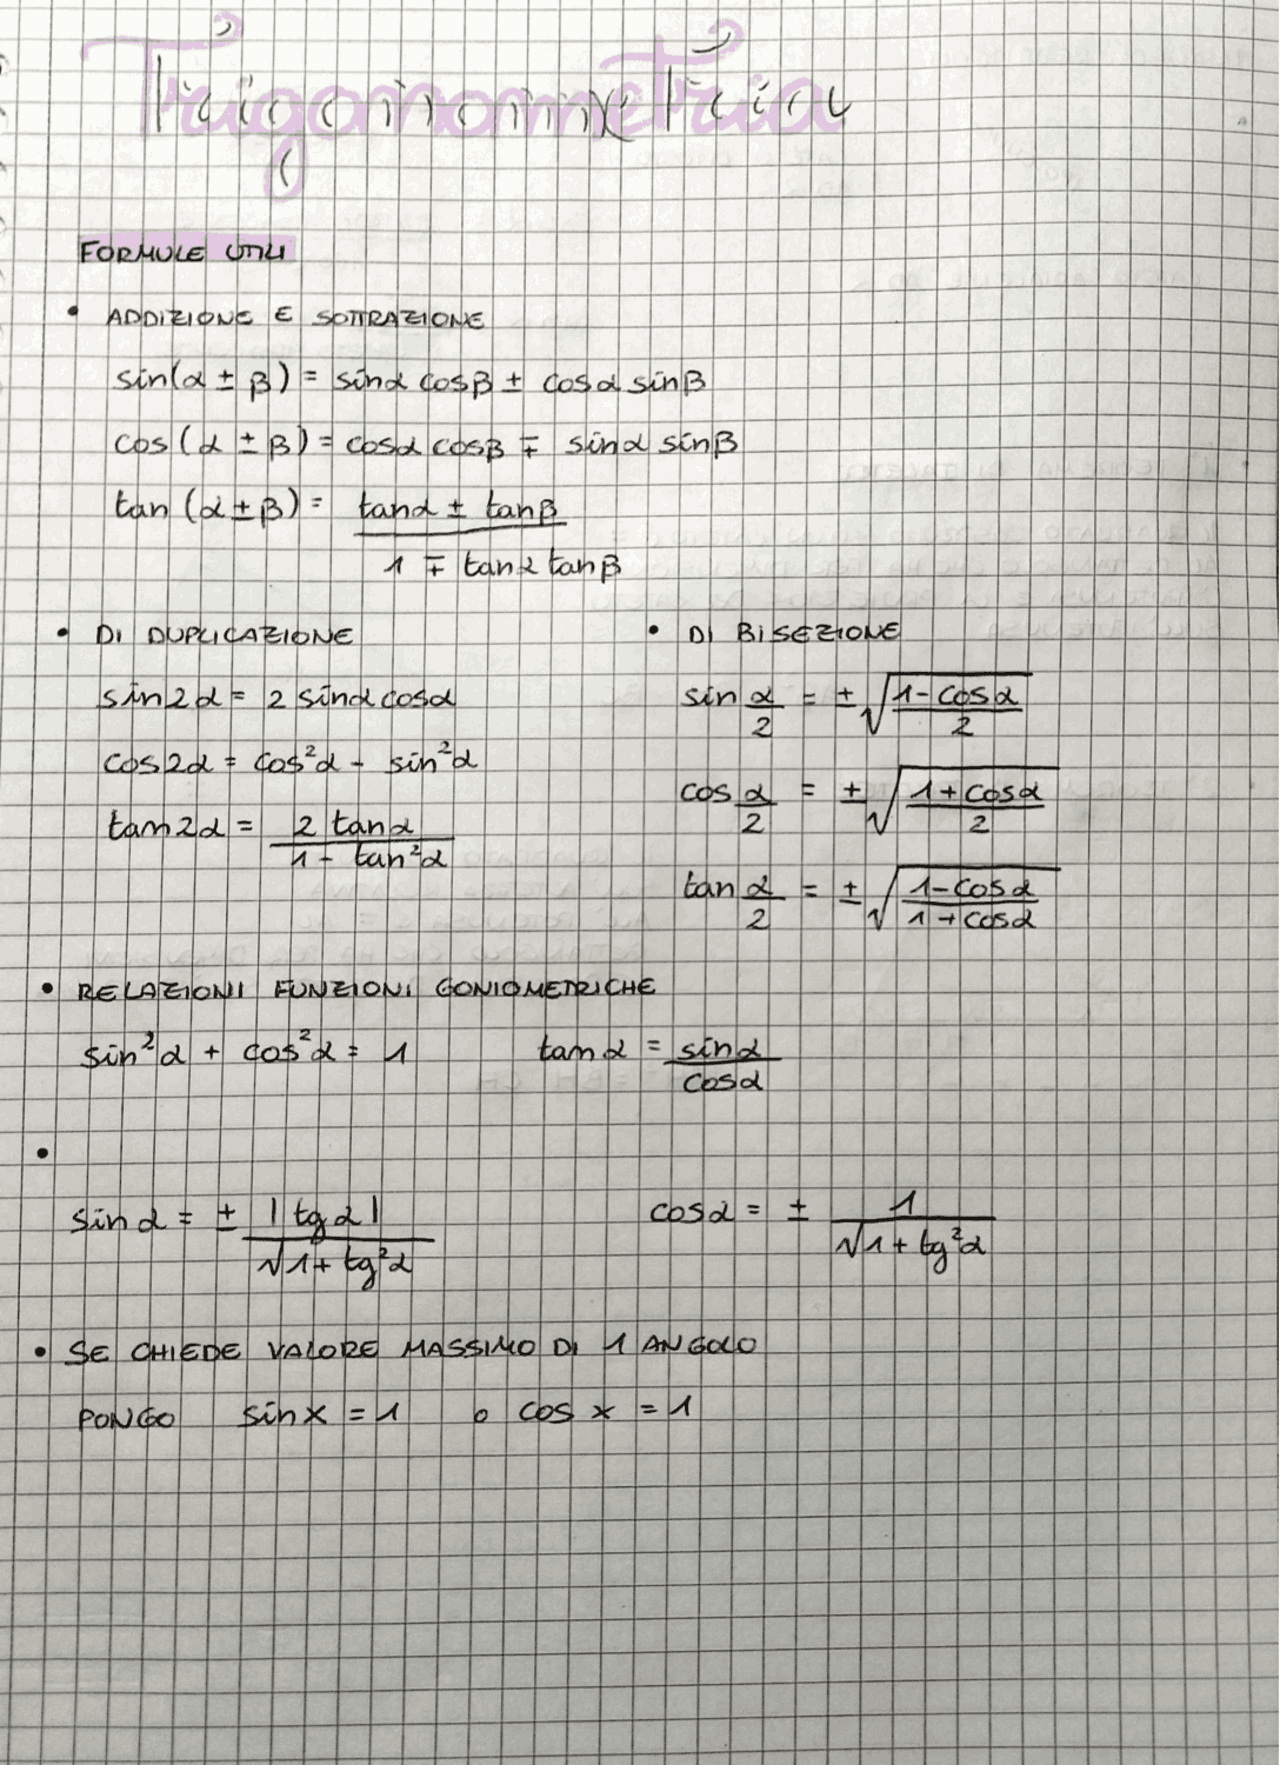 Trigonometria
FORMULE UTILI
• ADDIZIONE E SOTTRAZIONE
sin(α ± β) = sinα cosβ ± cosα sinβ
cos(α ± β) = cosα cosβ ∓ sinα sinβ
tan(α ± β) = (tanα ± tanβ)/(1 ∓ tanα tanβ)
• DI DUPLICAZIONE
sin2α = 2 sinα cosα
cos2α = cos²α - sin²α
tan2α = (2 tanα)/(1 - tan²α)
• DI BISEZIONE
sin α/2 = ± √((1-cosα)/2)
cos α/2 = ± √((1+cosα)/2)
tan α/2 = ± √((1-cosα)/(1+cosα))
• RELAZIONI FUNZIONI GONIOMETRICHE
sin²α + cos²α = 1 tanα = sinα/cosα
•
sinα = ± |tgα|/√(1+tg²α) cosα = ± 1/√(1+tg²α)
• SE CHIEDE VALORE MASSIMO DI 1 ANGOLO
PONGO sinx = 1 o cosx = 1